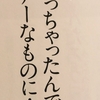 っちゃったんで
アーなものに